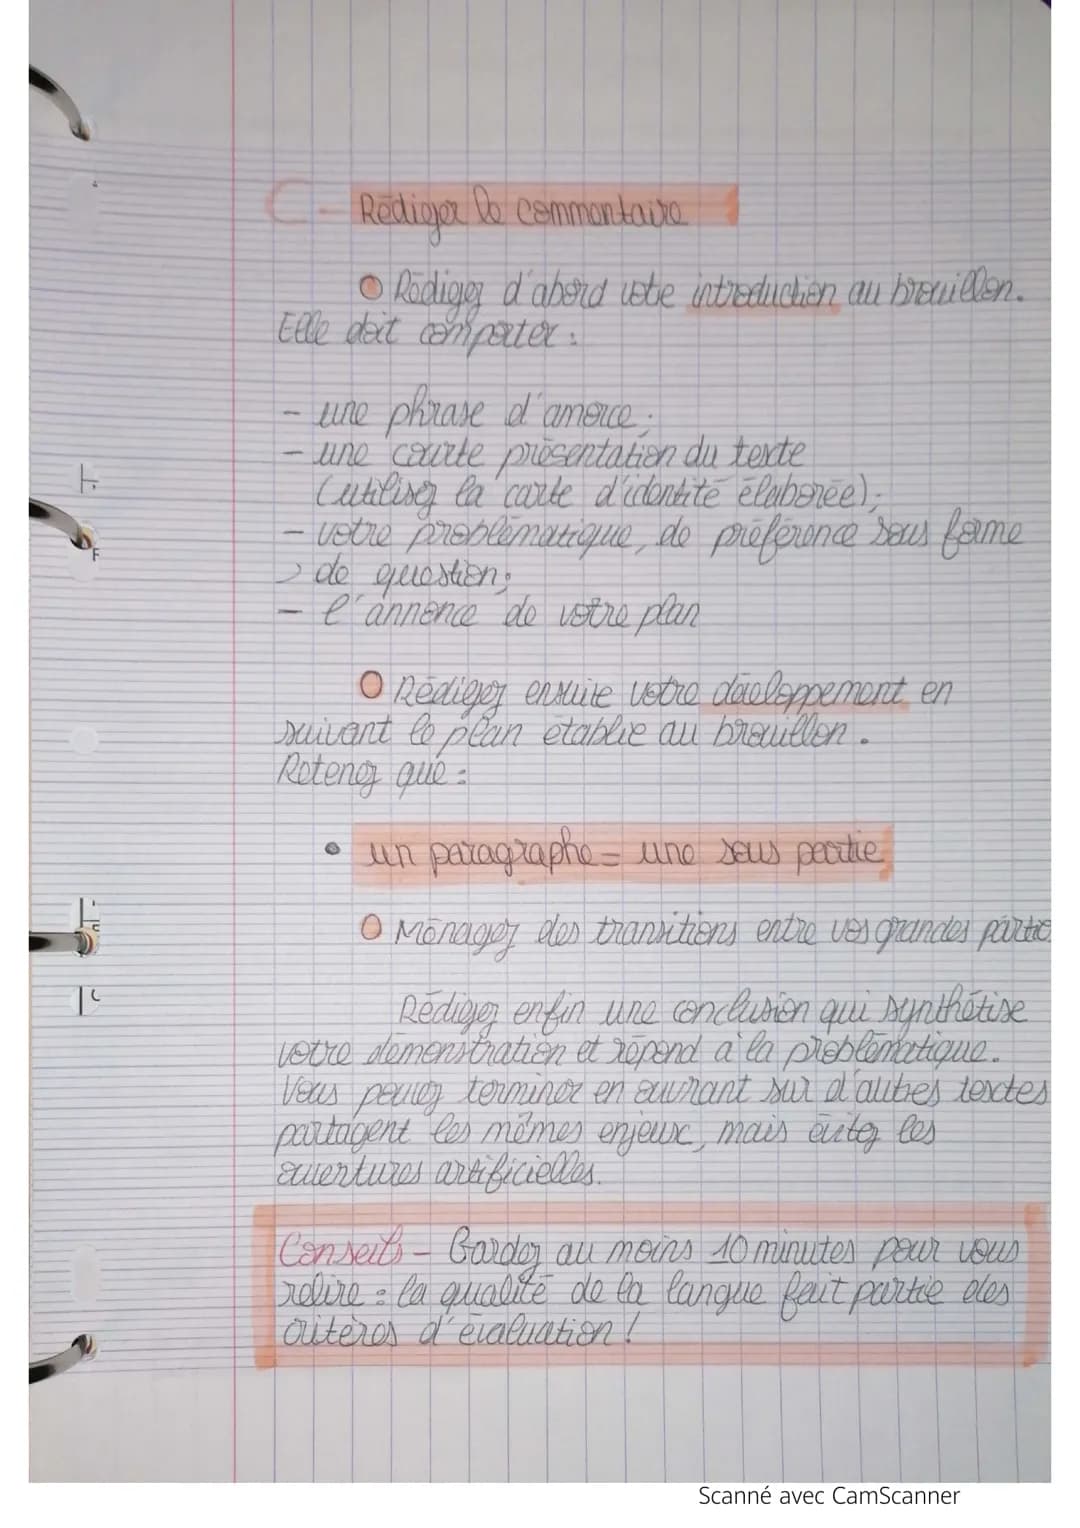 C - Rédiger le commentaire
Rédigez d'abord votre introduction au brouillon.
Elle doit comporter :
- une phrase d'amorce ;
- une courte présentation du texte
(utilisez la carte d'identité élaborée) ;
- votre problématique, de préférence sous forme
de question ;
- l'annonce de votre plan
Rédigez ensuite votre développement en
suivant le plan établie au brouillon.
Retenez que :
• un paragraphe = une sous partie
Ménagez des transitions entre vos grandes partie
Rédigez enfin une conclusion qui synthétise
votre démonstration et répond à la problématique.
Vous pouvez terminer en ouvrant sur d'autres textes
partagent les mêmes enjeux, mais évitez les
ouvertures artificielles.
Conseils - Gardez au moins 10 minutes pour vous
relire : la qualité de la langue fait partie des
critères d'évaluation !
Scanné avec CamScanner